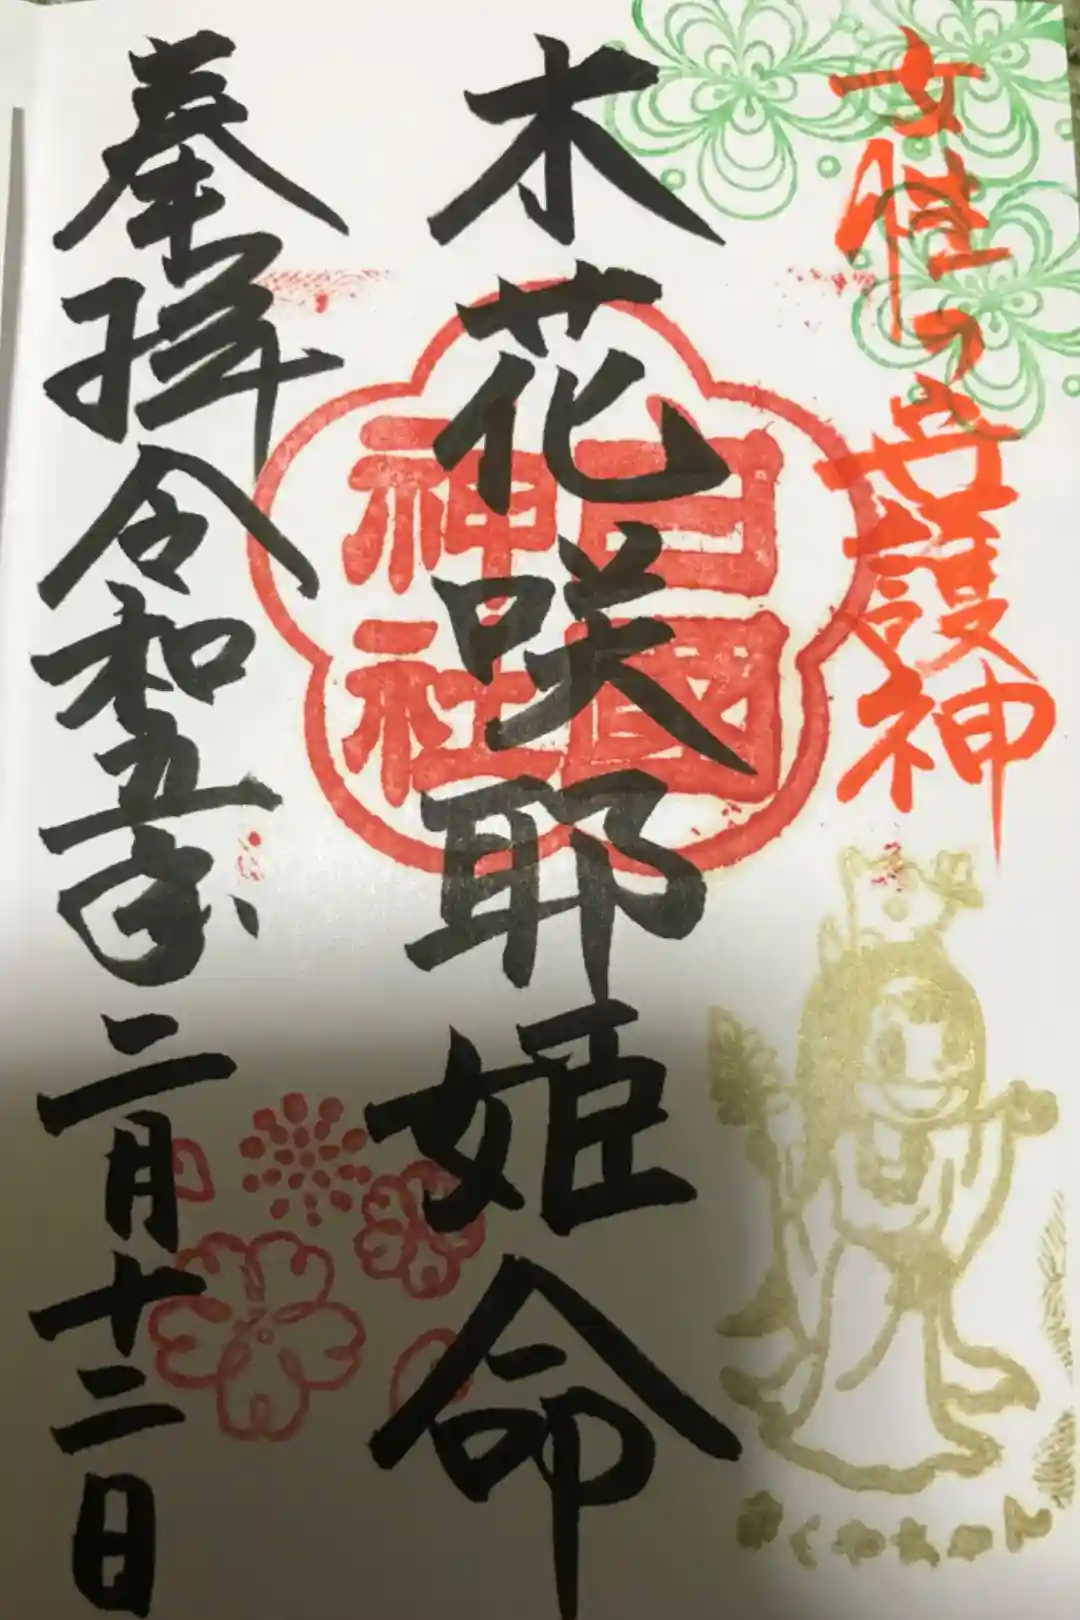 女性の守護神
木花咲耶姫命
四國
神社
奉拝令和五年二月十二日
さくやちゃん